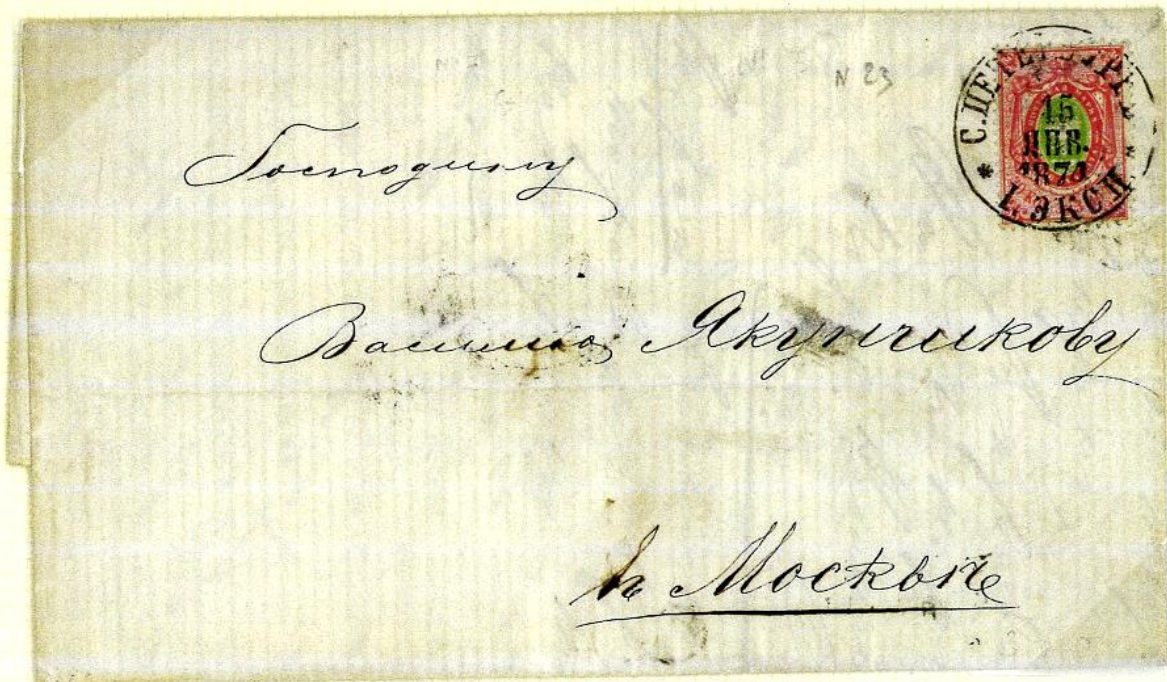 N 23
С. ПЕТЕРБУРГЪ
15
ЯНВ.
1871
1. ЭКСП.
Господину
Василию Якунчикову
въ Москвѣ